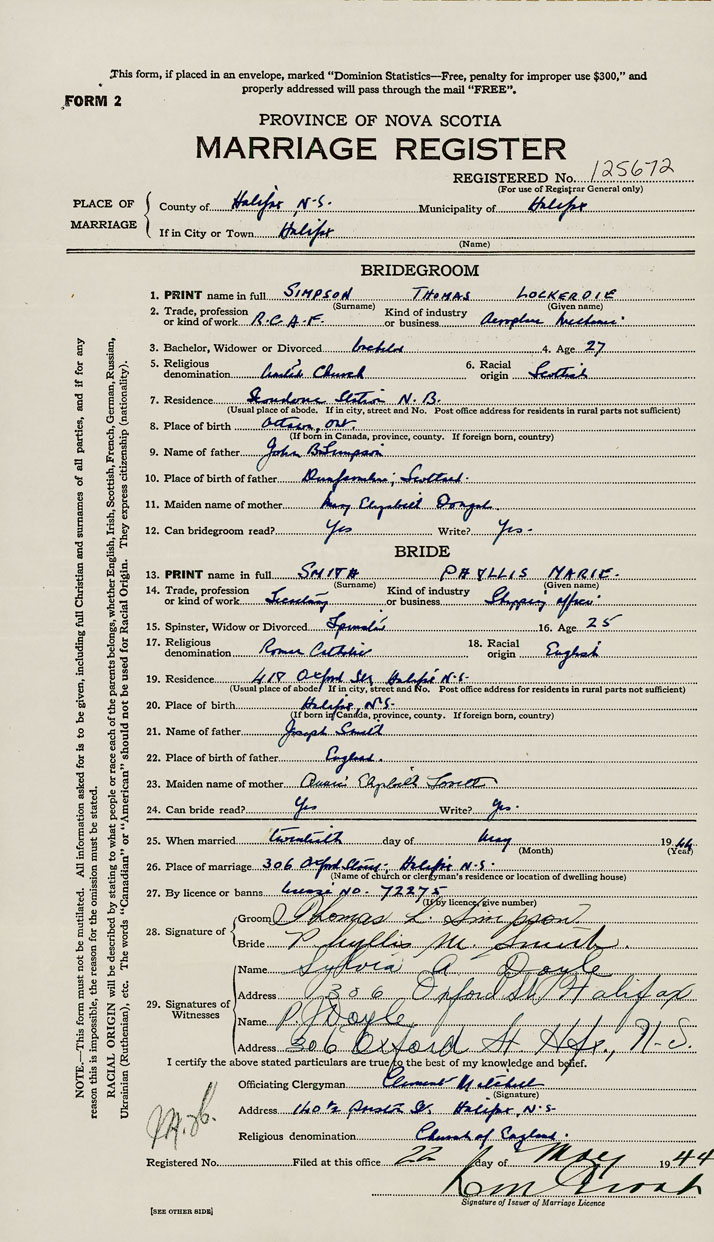 This form, if placed in an envelope, marked "Dominion Statistics—Free, penalty for improper use $300," and
properly addressed will pass through the mail "FREE".
FORM 2
PROVINCE OF NOVA SCOTIA
MARRIAGE REGISTER
REGISTERED No. 125672
(For use of Registrar General only)
PLACE OF MARRIAGE
County of Halifax, N-S. Municipality of Halifax
If in City or Town Halifax
(Name)
BRIDEGROOM
1. PRINT name in full SIMPSON THOMAS LOCKERDIE
(Surname) (Given name)
2. Trade, profession or kind of work R.C.A.F. Kind of industry or business Aeroplane Mechanic
3. Bachelor, Widower or Divorced 4. Age 27
5. Religious denomination United Church 6. Racial origin Scottish
7. Residence Station N.B.
(Usual place of abode. If in city, street and No. Post office address for residents in rural parts not sufficient)
8. Place of birth Ottawa, Ont.
(If born in Canada, province, county. If foreign born, country)
9. Name of father John B. Simpson
10. Place of birth of father Scotland.
11. Maiden name of mother Mary Elizabeth
12. Can bridegroom read? Yes Write? Yes.
BRIDE
13. PRINT name in full SMITH PHYLLIS MARIE.
(Surname) (Given name)
14. Trade, profession or kind of work Secretary Kind of industry or business Shipping office
15. Spinster, Widow or Divorced Spinster 16. Age 25
17. Religious denomination Roman Catholic 18. Racial origin English
19. Residence 418 Oxford St, Halifax N-S.
(Usual place of abode. If in city, street and No. Post office address for residents in rural parts not sufficient)
20. Place of birth Halifax, N-S-
(If born in Canada, province, county. If foreign born, country)
21. Name of father Joseph Smith
22. Place of birth of father England.
23. Maiden name of mother Elizabeth
24. Can bride read? Yes Write? Yes.
25. When married twentieth day of May 1944
(Month) (Year)
26. Place of marriage 306 Oxford Street, Halifax N-S.
(Name of church or clergyman's residence or location of dwelling house)
27. By licence or banns No. 72275
(If by licence, give number)
28. Signature of
Groom Thomas L. Simpson
Bride Phyllis M. Smith.
29. Signatures of Witnesses
Name Sylvia A. Doyle
Address 306 Oxford St Halifax
Name P J Doyle
Address 306 Oxford St Hfx., N-S.
I certify the above stated particulars are true to the best of my knowledge and belief.
Officiating Clergyman Clement Mitchell
(Signature)
Address 140½ St. Halifax, N-S
Religious denomination Church of England.
Registered No. Filed at this office 22 day of May 1944
Signature of Issuer of Marriage Licence
[SEE OTHER SIDE]
NOTE.—This form must not be mutilated. All information asked for is to be given, including full Christian and surnames of all parties, and if for any
reason this is impossible, the reason for the omission must be stated.
RACIAL ORIGIN will be described by stating to what people or race each of the parents belongs, whether English, Irish, Scottish, French, German, Russian,
Ukrainian (Ruthenian), etc. The words "Canadian" or "American" should not be used for Racial Origin. They express citizenship (nationality).